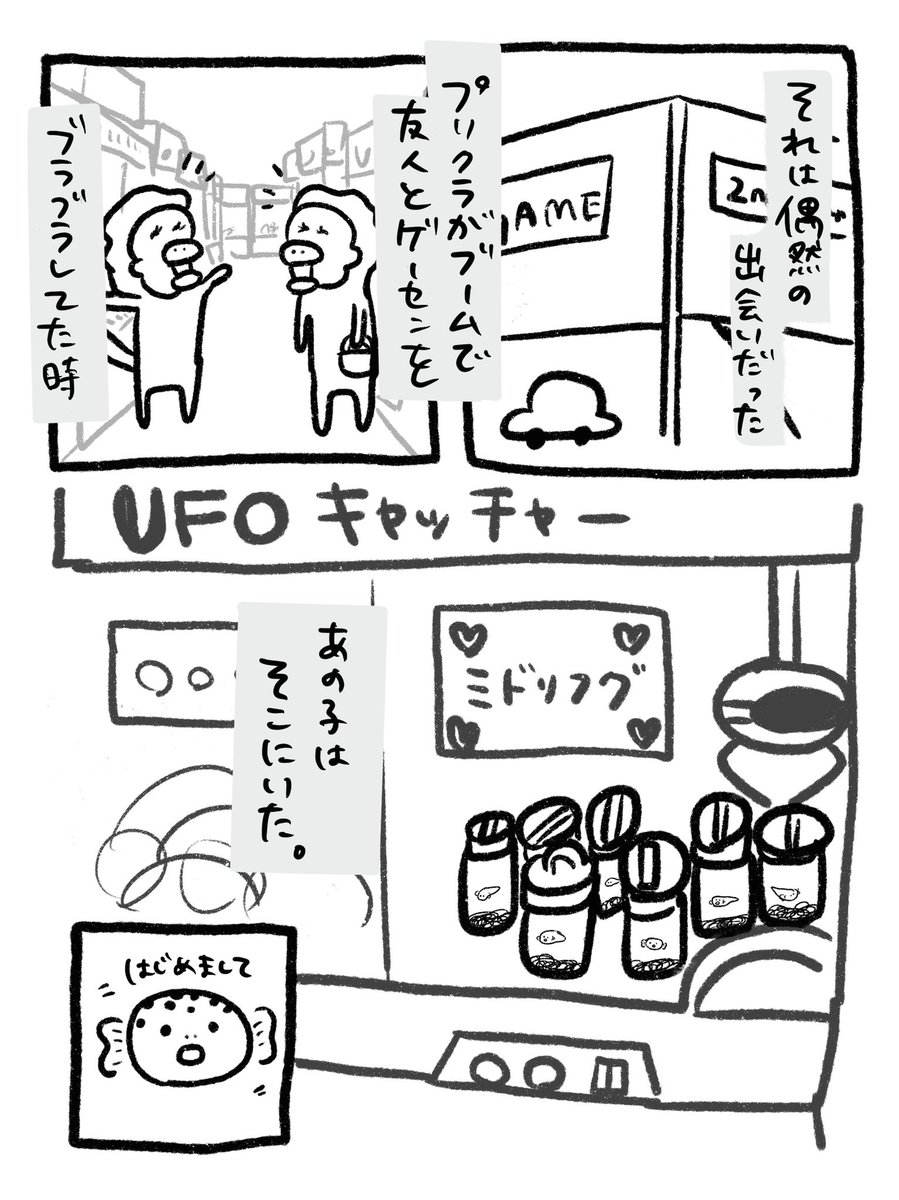 それは偶然の
出会いだった
GAME
プリクラがブームで
友人とゲーセンを
ブラブラしてた時
UFOキャッチャー
ミドリフグ
あの子は
そこにいた。
はじめまして